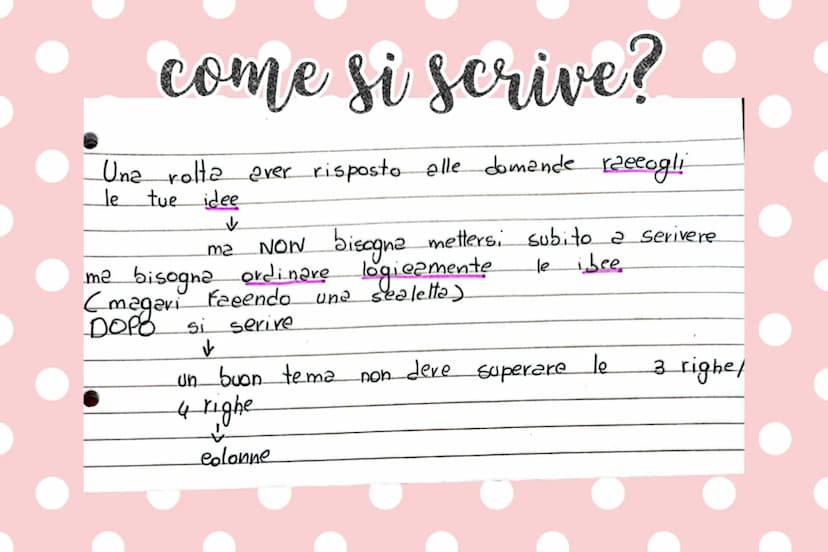 come si scrive?
Una volta aver risposto alle domande raccogli
le tue idee
↓
ma NON bisogna mettersi subito a scrivere
ma bisogna ordinare logicamente le idee
(magari facendo una scaletta)
DOPO si scrive
↓
un buon tema non deve superare le 3 righe/
4 righe
↓
colonne